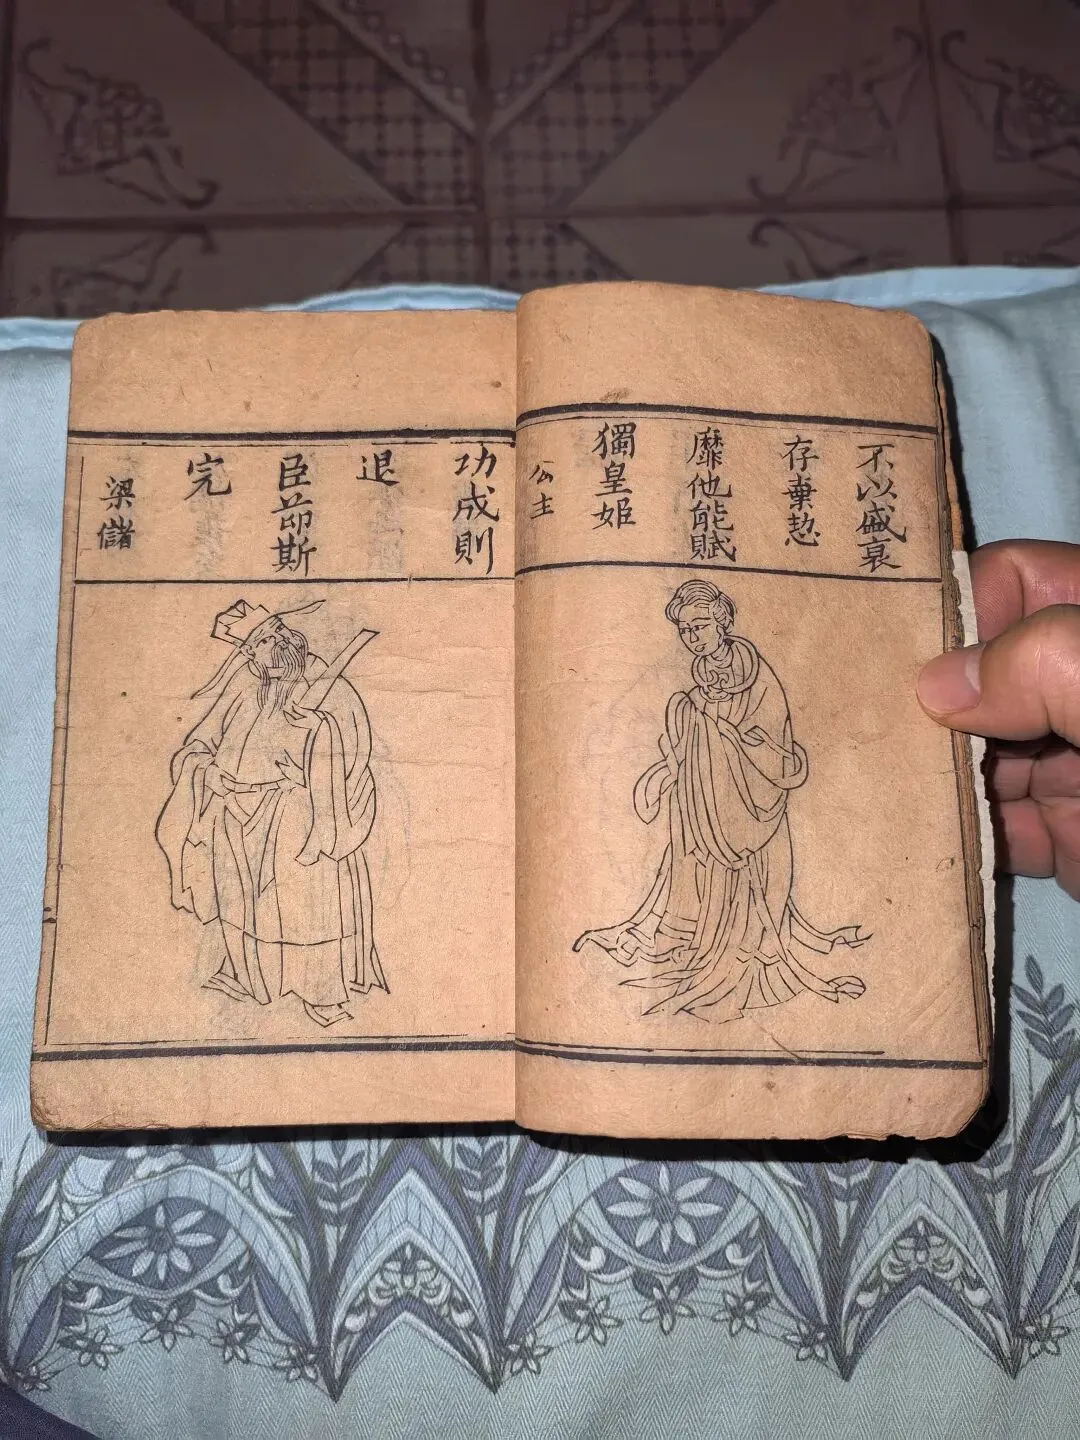 不以盛衰
存棄愸
靡他能賦
獨皇姬
公主
功成則
退
臣莭斯
完
梁儲